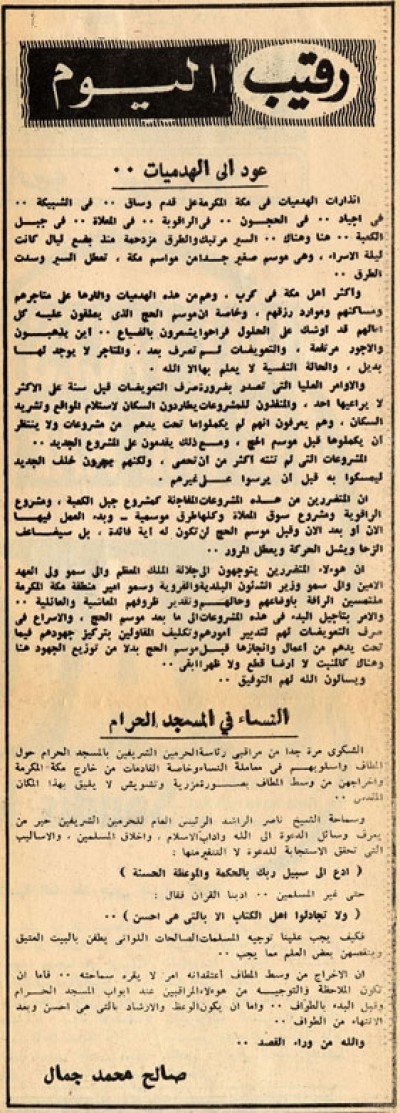 رقيب اليوم
عود الى الهدميات ٠٠
انذارات الهدميات فى مكة المكرمة على قدم وساق ٠٠ فى الشبيكة ٠٠
فى اجياد ٠٠ فى الحجون ٠٠ فى الراقوبة ٠٠ فى المعلاة ٠٠ فى جبل
الكعبة ٠٠ هنا وهناك ٠٠ السير مرتبك والطرق مزدحمة منذ بضع ليال كانت
ليلة الاسراء ، وهى موسم صغير جدا من مواسم مكة ، تعطل السير وسدت
الطرق ٠٠
وأكثر أهل مكة فى كرب ، وهم من هذه الهدميات واثارها على متاجرهم
ومساكنهم وموارد رزقهم ، وخاصة ان موسم الحج الذى يعلقون عليه كل
امالهم قد اوشك على الحلول فراحوا يشعرون بالضياع ٠٠ اين يذهبون
والاجور مرتفعة ، والتعويضات لم تصرف بعد ، والمتاجر لا يوجد لها
بديل ، والحالة النفسية لا يعلم بها الا الله ٠
والاوامر العليا التى تصدر بضرورة صرف التعويضات قبل سنة على الاكثر
لا يراعيها احد ، والمنفذون للمشروعات يطاردون السكان لاستلام المواقع وتشريد
السكان ، وهم يعرفون انهم لم يكملوا ما تحت يدهم من مشروعات ولا ينتظر
أن يكملوها قبل موسم الحج ، ومع ذلك يقدمون على المشروع الجديد ٠٠
المشروعات التى لم تنته أكثر من أن تحصى ، ولكنهم يجرون خلف الجديد
ليمسكوا به قبل أن يرسوا على غيرهم ٠
ان المتضررين من هذه المشروعات المفاجئة كمشروع جبل الكعبة ، ومشروع
الراقوبة ومشروع سوق المعلاة وكلها طرق موسمية ــ وبدء العمل فيها
الان أو بعد الان وقبل موسم الحج لن تكون له اية فائدة ، بل سيضاعف
الزحا ويشل الحركة ويعطل المرور ٠٠
ان هولاء المتضررين يتوجهون الى جلالة الملك المعظم والى سمو ولى العهد
الامين والى سمو وزير الشئون البلدية والقروية وسمو امير منطقة مكة المكرمة
ملتمسين الرأفة باوضاعهم وحالهم وتقدير ظروفهم المعاشية والعائلية ٠٠
والامر بتاجيل البدء فى هذه المشروعات الى ما بعد موسم الحج ، والاسراع فى
صرف التعويضات لهم لتدبير أمورهم وتكليف المقاولين بتركيز جهودهم فيما
تحت يدهم من أعمال وانجازها قبل موسم الحج بدلا من توزيع الجهود هنا
وهناك كالمنبت لا ارضا قطع ولا ظهرا ابقى ٠٠
ويسالون الله لهم التوفيق ٠٠
النساء فى المسجد الحرام
الشكوى مرة جدا من مراقبى رئاسة الحرمين الشريفين بالمسجد الحرام حول
المطاف واسلوبهم فى معاملة النساء وخاصة القادمات من خارج مكة المكرمة
واخراجهن من وسط المطاف بصورة مزرية وتشويش لا يليق بهذا المكان
المقدس ٠٠
وسماحة الشيخ ناصر الراشد الرئيس العام للحرمين الشريفين خير من
يعرف وسائل الدعوة الى الله واداب الاسلام ، واخلاق المسلمين ، والاساليب
التى تحقق الاستجابة للدعوة لا التنفير منها :
( ادع الى سبيل ربك بالحكمة والموعظة الحسنة )
حتى غير المسلمين ٠٠ ادبنا القران فقال :
( ولا تجادلوا اهل الكتاب الا بالتى هى احسن ) ٠٠
فكيف يجب علينا توجيه المسلمات الصالحات اللواتى يطفن بالبيت العتيق
وينقصهن بعض العلم مما يجب ٠٠
ان الاخراج من وسط المطاف أعتقد انه امر لا يقره سماحته ٠٠ فاما ان
تكون الملاحظة والتوجيه من هؤلاء المراقبين عند ابواب المسجد الحرام
وقبل البدء بالطواف ٠٠ واما ان يكون الوعظ والارشاد بالتى هى احسن وبعد
الانتهاء من الطواف ٠٠
والله من وراء القصد ٠٠
صالح محمد جمال